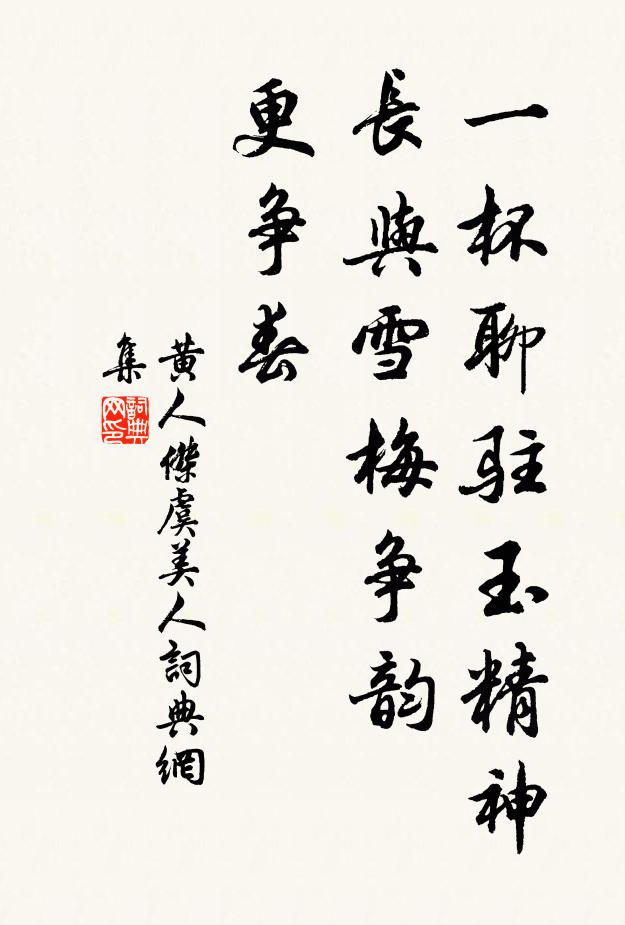 一杯聊駐玉精神
長與雪梅争韵
更争春
黄人傑虞美人詞典網
集
詞典网印